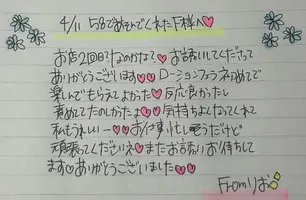 4/11 58分であそんでくれたF様へ♡
お店2回目?なのかな?♡お誘いしてくださって
ありがとうございます♡♡ローションプレイ初めてで
楽しんでもらえてよかった♡反応良かったし
責めてたのしかったよ♡♡気持ちよくなってくれて
私もうれしいー♡♡お仕事忙しそうだけど
頑張ってくださいネ♡またお誘いお待ちして
ます♡ありがとうございました♡♡
Fromりお